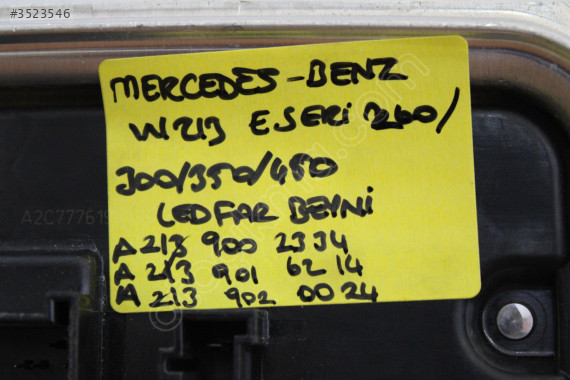 #3523546
MERCEDES-BENZ
W213 E SERİ 260/
300/350/450
LED FAR BEYNİ
A2C777619
A 213 900 2334
A 213 901 6214
A 213 902 0024